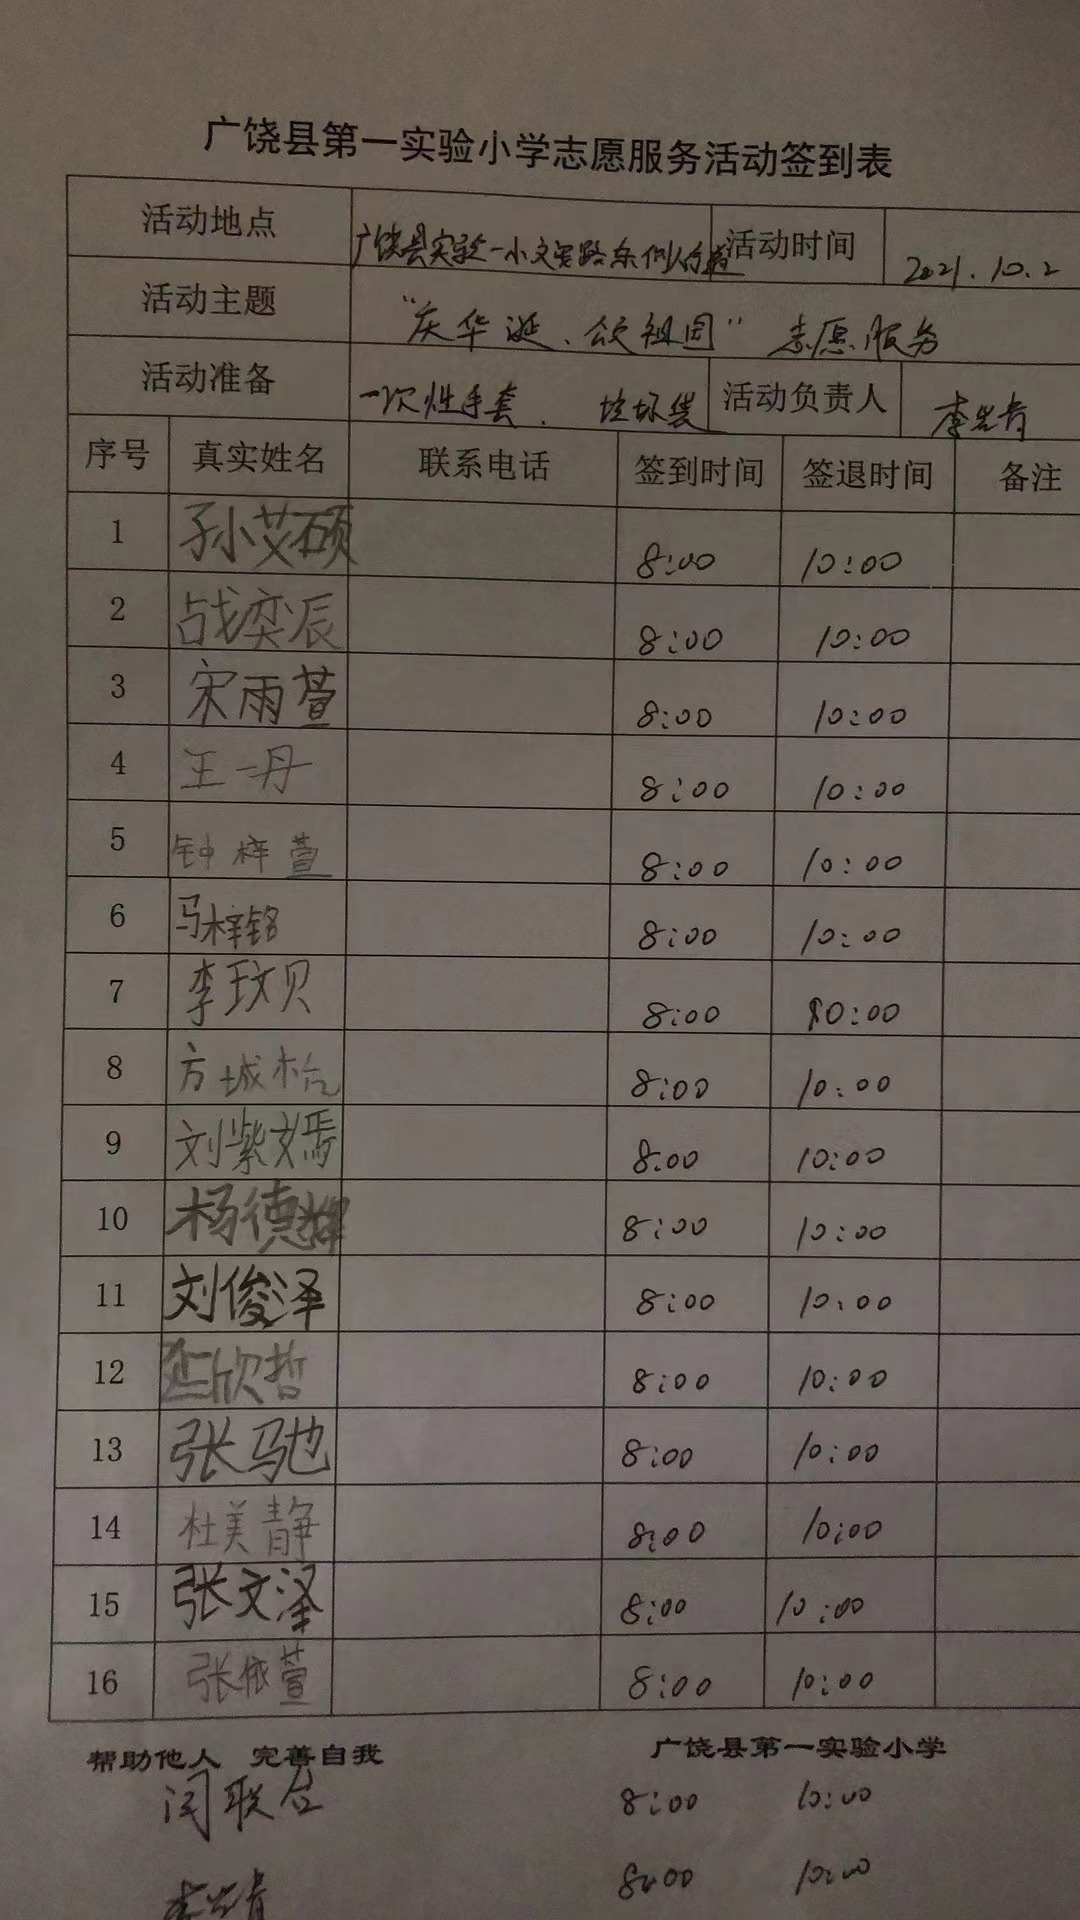 广饶县第一实验小学志愿服务活动签到表
活动地点 广饶县实验一小文安路东侧人行道 活动时间 2021.10.2
活动主题 "庆华诞、颂祖国" 志愿服务
活动准备 一次性手套、垃圾袋 活动负责人 李
序号 真实姓名 联系电话 签到时间 签退时间 备注
1 孙小艾硕 8:00 10:00
2 战奕辰 8:00 10:00
3 宋雨萱 8:00 10:00
4 王一丹 8:00 10:00
5 钟梓萱 8:00 10:00
6 马梓铭 8:00 10:00
7 李玟贝 8:00 10:00
8 方城 8:00 10:00
9 刘紫嫣 8:00 10:00
10 杨德辉 8:00 10:00
11 刘俊泽 8:00 10:00
12 欣哲 8:00 10:00
13 张驰 8:00 10:00
14 杜美静 8:00 10:00
15 张文泽 8:00 10:00
16 张依萱 8:00 10:00
帮助他人 完善自我 广饶县第一实验小学
闫联合 8:00 10:00
李 8:00 10:00